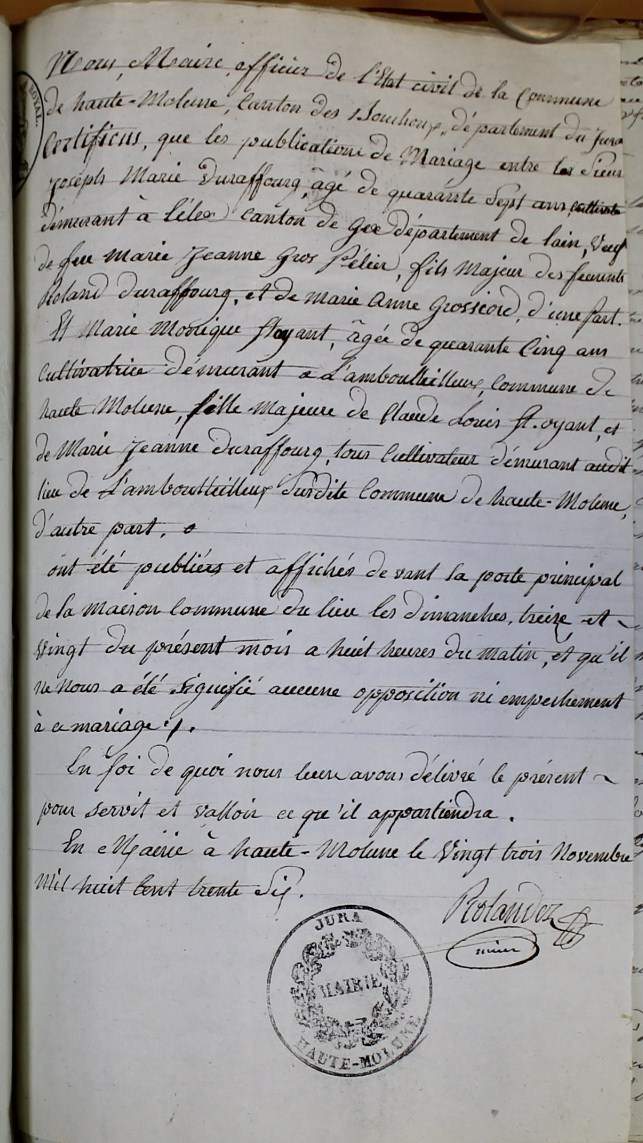 ROYAL.
Nous, Maire, officier de l'Etat civil de la Commune
de haute-Molune, Canton des Bouchoux, département du Jura
Certifions, que les publications de Mariage entre les Sieur
Joseph Marie Duraffourg, âgé de quarante Sept ans cultivateur
démurant à Lélex Canton de Gex département de lain, Veuf
de feu Marie Jeanne Gros Pélier, fils Majeur des feuents
Roland duraffourg, et de Marie Anne Grossiord, d'une part.
Et Marie Monique floyant, âgée de quarante Cinq ans
Cultivatrice démurant a L'amboutteilleux, Commune de
haute Molune, fille Majeure de Claude Louis floyant, et
de Marie Jeanne duraffourg, tous Cultivateur démurant audit
lieu de L'amboutteilleux Surdite Commune de haute-Molune,
d'autre part.
ont été publiés et affichés devant la porte principal
de la Maison Commune du lieu les dimanches, treize et
Vingt du présent mois a huit heures du Matin, et qu'il
ne nous a été Signifié aucune opposition ni empechement
à ce mariage.
En foi de quoi nous leur avons délivré le présent
pour servit et valloir ce qu'il appartiendra.
En Mairie à haute-Molune le Vingt trois Novembre
Mil huit Cent trente Six.
Rolandez
maire
JURA
MAIRIE
HAUTE-MOLUNE